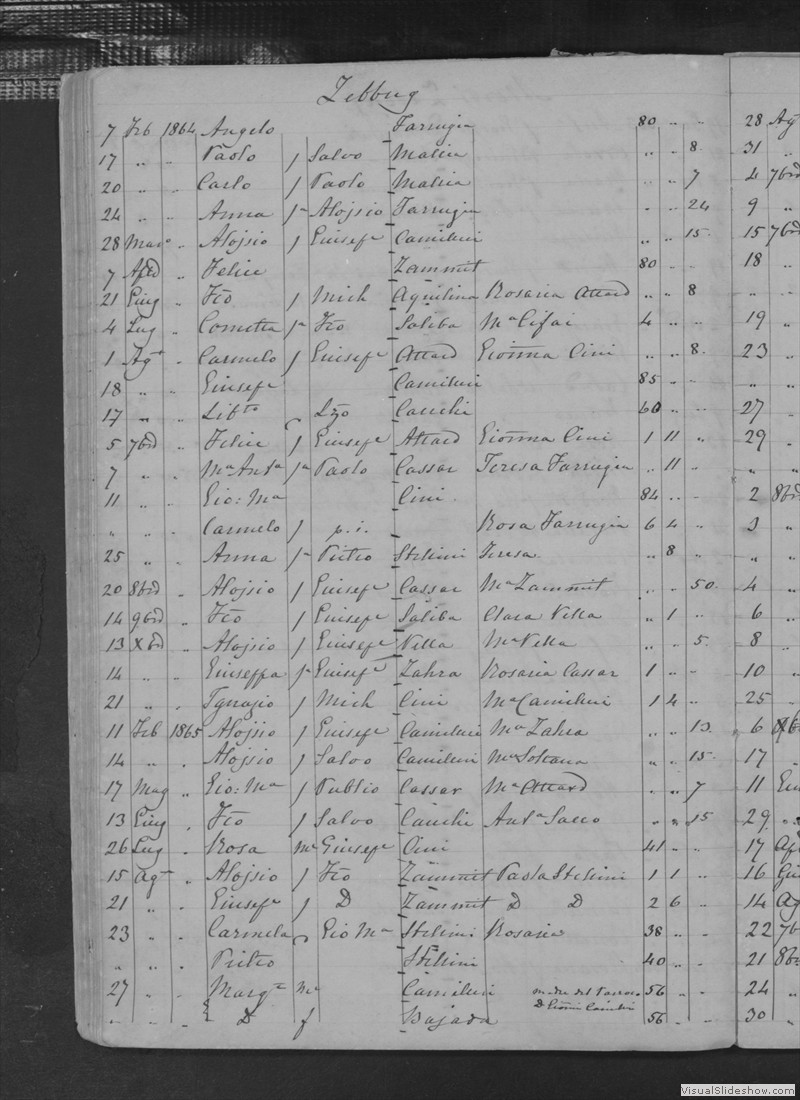 Zebbug
7 Feb 1864 Angelo Farrugia 80 .. ..
28 Ag
17 .. .. Paolo f Salvo Mallia .. .. 8
31 ..
20 .. .. Carlo f Paolo Mallia .. .. 7
4 7bre
24 .. .. Anna fa Aloisio Farrugia .. .. 24
9 ..
28 Maro .. Aloisio f Giusepe Camilleri .. .. 15
15 7bre
7 Aple .. Felice Zammit 80 .. ..
18 ..
21 Giug .. Fco f Mich Aquilina Rosaria Attard .. .. 8
.. ..
4 Lug .. fa Fco Saliba Ma Cifai 4 .. ..
19 ..
1 Agto .. Carmelo f Giusepe Attard Gionna Cini .. .. 8
23 ..
18 .. .. Giusepe Camilleri 85 .. ..
.. ..
17 .. .. Libto Lzo Cauchi 60 .. ..
27 ..
5 7bre .. Felice f Giusepe Attard Gionna Cini 1 11 ..
29 ..
7 .. .. Ma Anta fa Paolo Cassar Teresa Farrugia .. 11 ..
.. ..
11 .. .. Gio: Ma Cini 84 .. ..
2 8bre
.. .. .. Carmelo f p.i. Rosa Farrugia 6 4 ..
3 ..
25 .. .. Anna fa Pietro Stellini Teresa .. 8 ..
.. ..
20 8bre .. Aloisio f Giusepe Cassar Ma Zammit .. .. 50
4 ..
14 9bre .. Fco f Giusepe Saliba Clara Vella .. 1 ..
6 ..
13 Xbre .. Aloisio f Giusepe Vella Ma Vella .. .. 5
8 ..
14 .. .. Giuseppa fa Giusepe Zahra Rosaria Cassar 1 .. ..
10 ..
21 .. .. Ignazio f Mich Cini Ma Camilleri 1 4 ..
25 ..
11 Feb 1865 Aloisio f Giusepe Camilleri Ma Zahra .. .. 13
6
14 .. .. Aloisio f Salvo Camilleri Ma Sultana .. .. 15
17 ..
17 Mag .. Gio: Ma f Publio Cassar Ma Attard .. .. 7
11
13 Giug .. Fco f Salvo Cauchi Anta Sacco .. .. 15
29 ..
26 Lug .. Rosa Me Giusepe Cini 41 .. ..
17
15 Agto .. Aloisio f Fco Zammit Paola Stellini 1 1 ..
16
21 .. .. Giusepe f D Zammit D D 2 6 ..
14 Ag
23 .. .. Carmela Gio Ma Stellini Rosaria 38 .. ..
22 7b
.. .. .. Pietro Stellini 40 .. ..
21 8b
27 .. .. Margta Camilleri 56 .. ..
24 ..
.. .. .. D f Bajada 56 .. ..
30 ..
VisualSlideshow.com